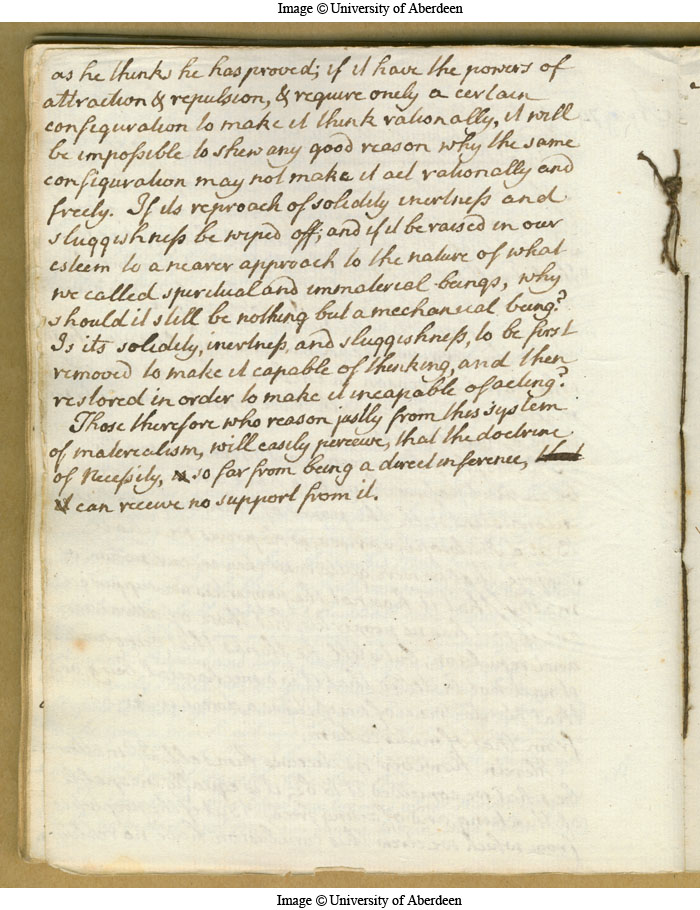 Image © University of Aberdeen
as he thinks he has proved; if it have the powers of
attraction & repulsion, & require onely a certain
configuration to make it think rationally, it will
be impossible to shew any good reason why the same
configuration may not make it act rationally and
freely. If its reproach of solidity inertness and
sluggishness be wiped off; and if it be raised in our
esteem to a nearer approach to the nature of what
we called spiritual and immaterial beings, why
should it still be nothing but a mechanical being?
Is its solidity, inertness, and sluggishness, to be first
removed to make it capable of thinking, and then
restored in order to make it incapable of acting?
Those therefore who reason justly from this system
of materialism, will easily perceive, that the doctrine
of Necessity, so far from being a direct inference,
can receive no support from it.
Image © University of Aberdeen